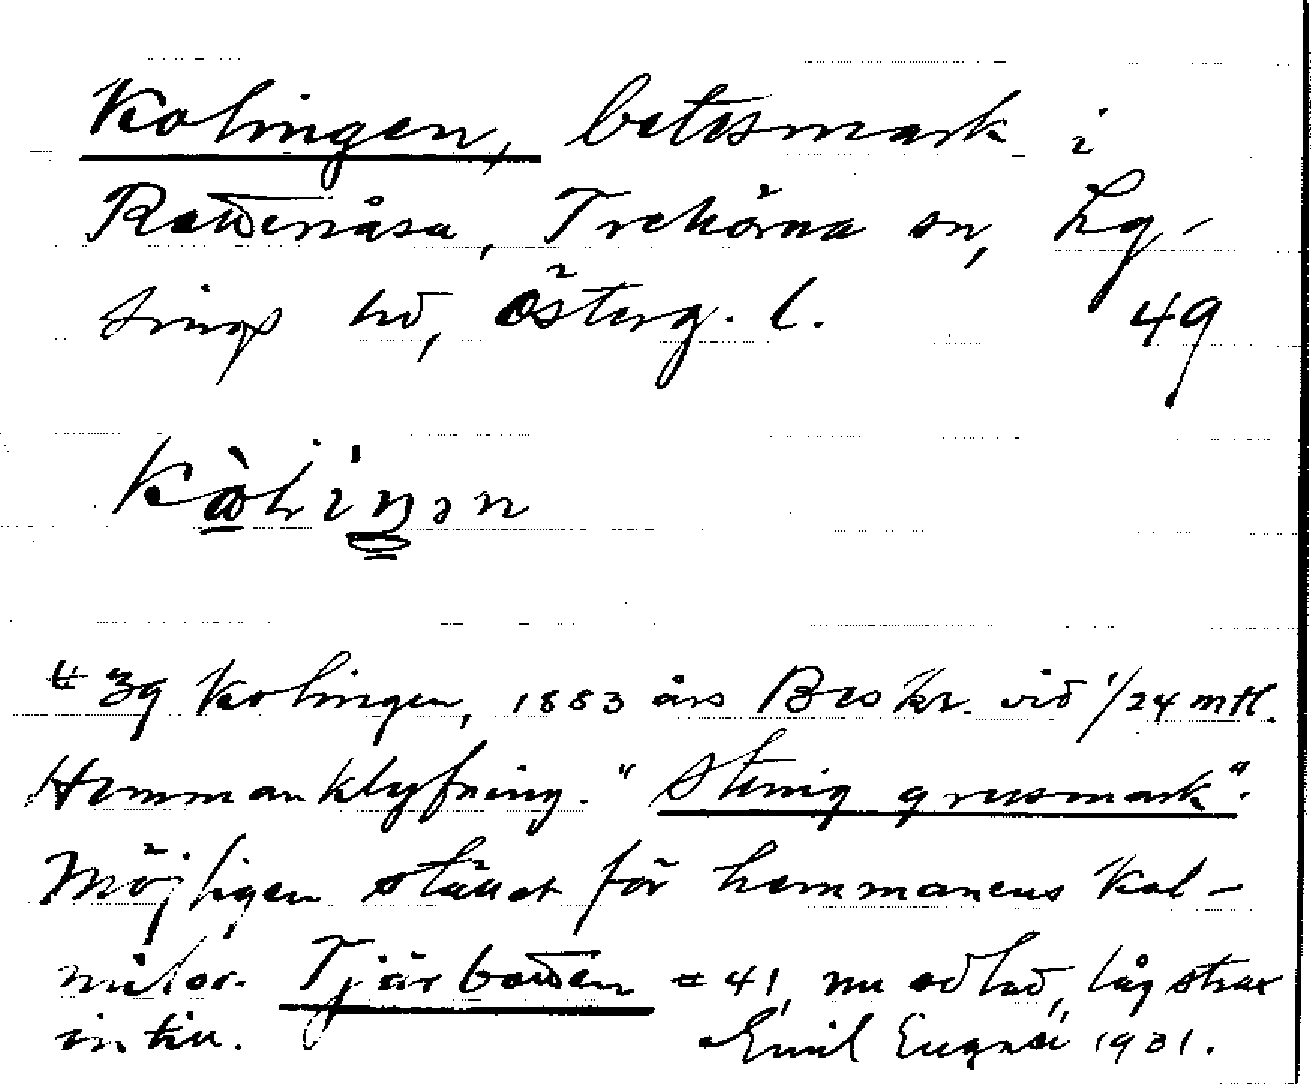 Kolingen, betesmark i
Raddenåsa, Trehörna sn, Lg-
sings hd, Österg. l. 49
Kòliŋən
# 39 Kolingen, 1883 års Beskr. vid 1/24 mtl.
Hemmanklyfning. "Stenig grusmark".
Möjligen stället för hemmanens kol-
milor. Tjärbodden # 41, nu odlad, låg strax
intill. Emil Eugnell 1931.